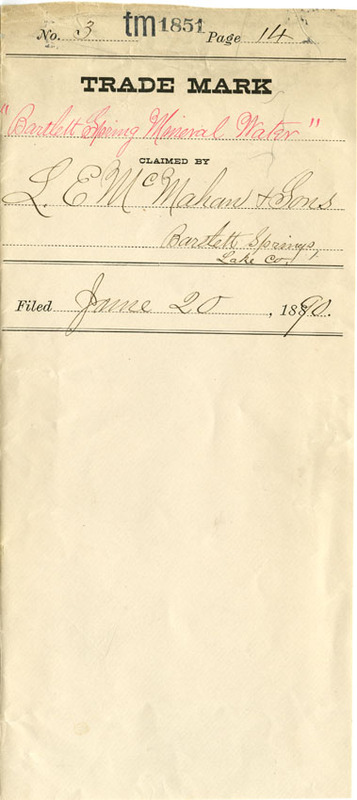 No. 3 tm1851 Page 14
TRADE MARK
"Bartlett Spring Mineral Water"
CLAIMED BY
L. E. McMahan & Sons
Bartlett Springs,
Lake Co.
Filed June 20, 1890.